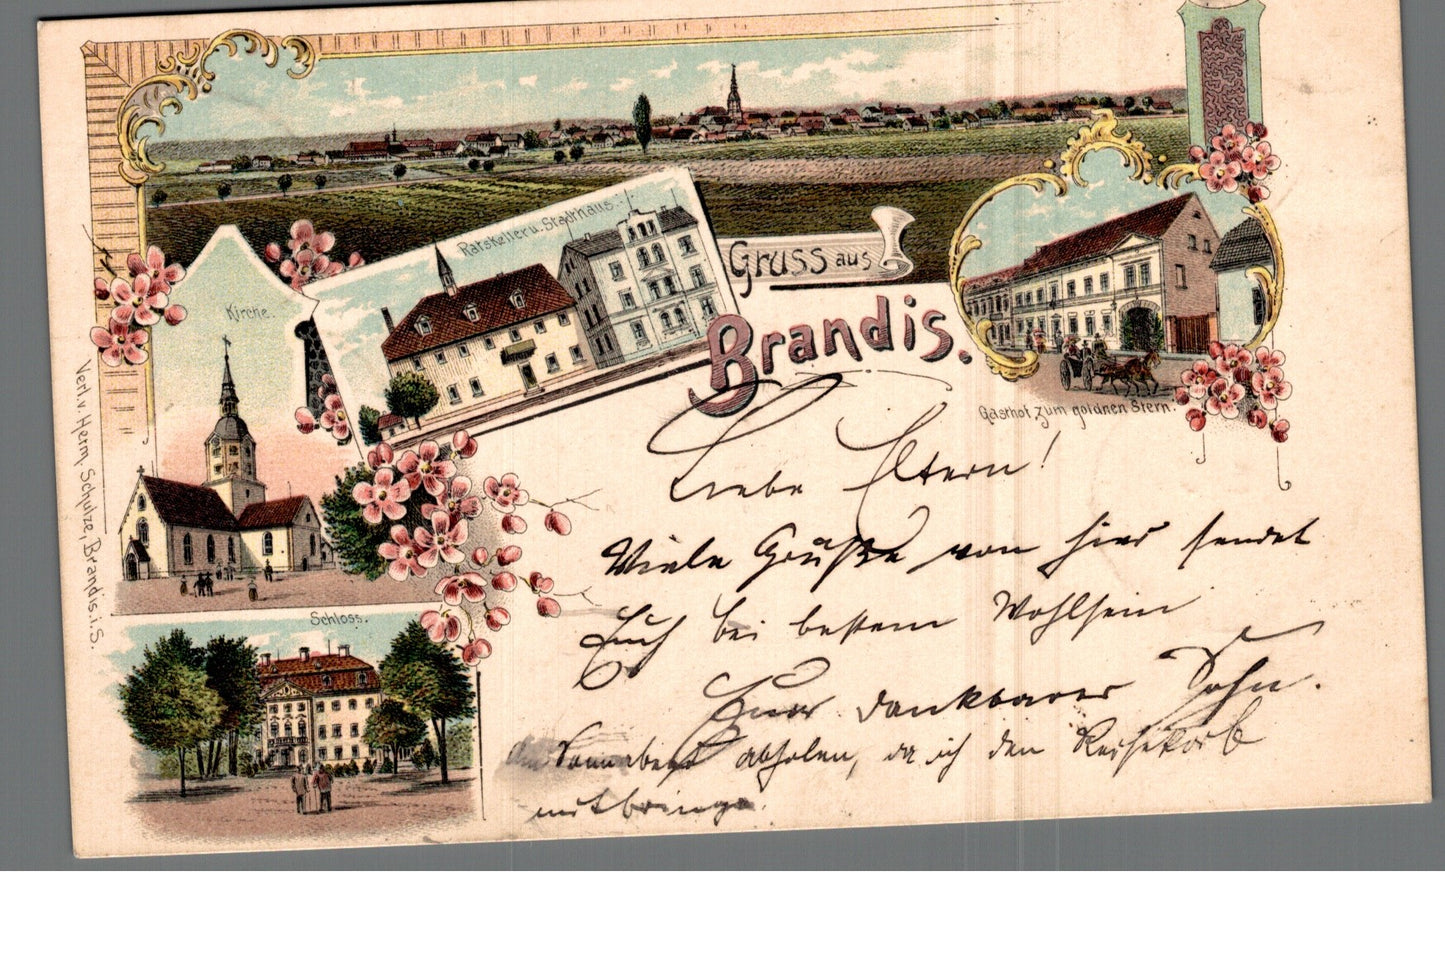 Kirche.
Ratskeller u. Stadthaus.
Gruss aus
Brandis.
Gasthof zum goldnen Stern.
Schloss.
Verl. v. Herm. Schulze, Brandis i. S.
Liebe Eltern!
Viele Grüße von hier sendet
Euch bei bestem Wohlsein
Euer dankbarer Sohn.
Sonnabend abholen, da ich den Reisekorb
mitbringe.